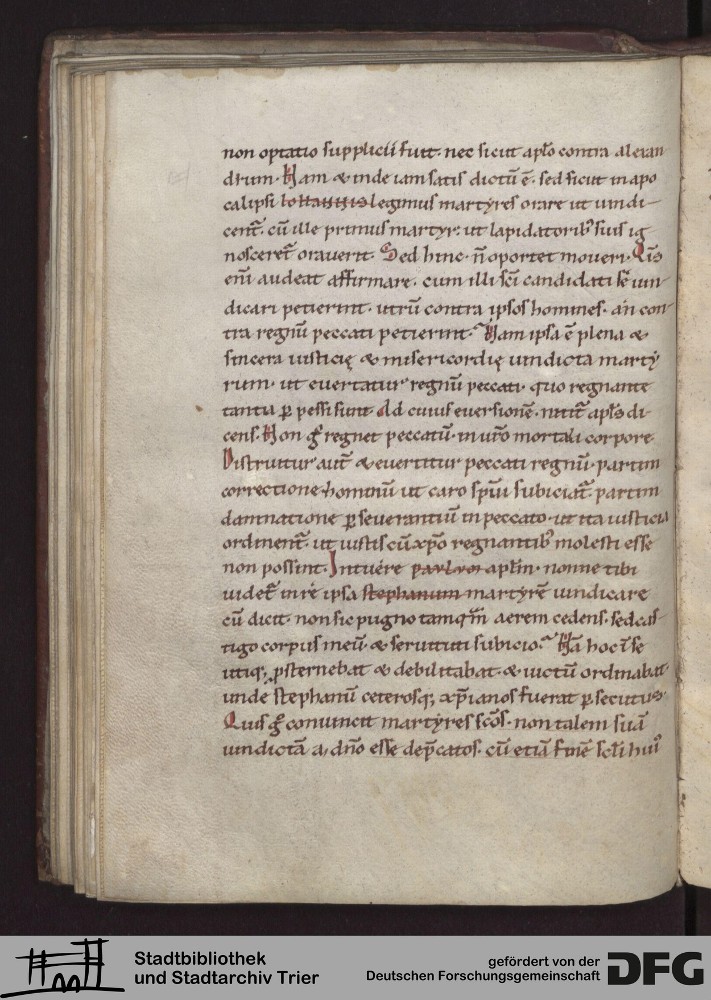 non optatio supplicii fuit. nec sicut apło contra alexan
drum. Nam & inde iam satis dictū ē. sed sicut in apo
calipsi iohannis legimus martyres orare ut uindi-
cent᷑. cū ille primus martyr. ut lapidatorib; suis ig
nosceret᷑ orauerit. Sed hinc. ñ oportet moueri. Qis
eni audeat affirmare. cum illi sci candidati se uin-
dicari petierint. utrū contra ipsos homines. an con-
tra regnū peccati petierint. Nam ipsa ē plena &
sincera iusticię & misericordię uindicta marty
rum. ut euertatur regnū peccati. quo regnante
tanta ꝑpessi sunt. Ad cuius euersionē. nitit᷑ apls di-
cens. Non g̊ regnet peccatū. in uro mortali corpore
Distruitur aut̄ & euertitur peccati regnū. partim
correctione hominū ut caro spui subiciat᷑. partim
damnatione ꝑseuerantiū in peccato. ut ita iusticia
ordinent᷑. ut iustis cū xpo regnantib; molesti esse
non possint. Intuere paulum aplm. nonne tibi
uidet᷑ in re ipsa stephanum martyrē uindicare
cū dicit. non sic pugno tamqm aerem cedens. sed cas-
tigo corpus meū. & seruituti subicio. Nā hoc ī se
utiq; psternebat & debilitabat. & uictū ordinabat.
unde stephanū ceterosq; xpianos fuerat ꝑsecutus.
Quis g̊ conuincit martyres scos. non talem suā
uindictā a dno esse dep̄catos. cū etiā finē scli hui᷒
Stadtbibliothek
und Stadtarchiv Trier
gefördert von der
Deutschen Forschungsgemeinschaft
DFG